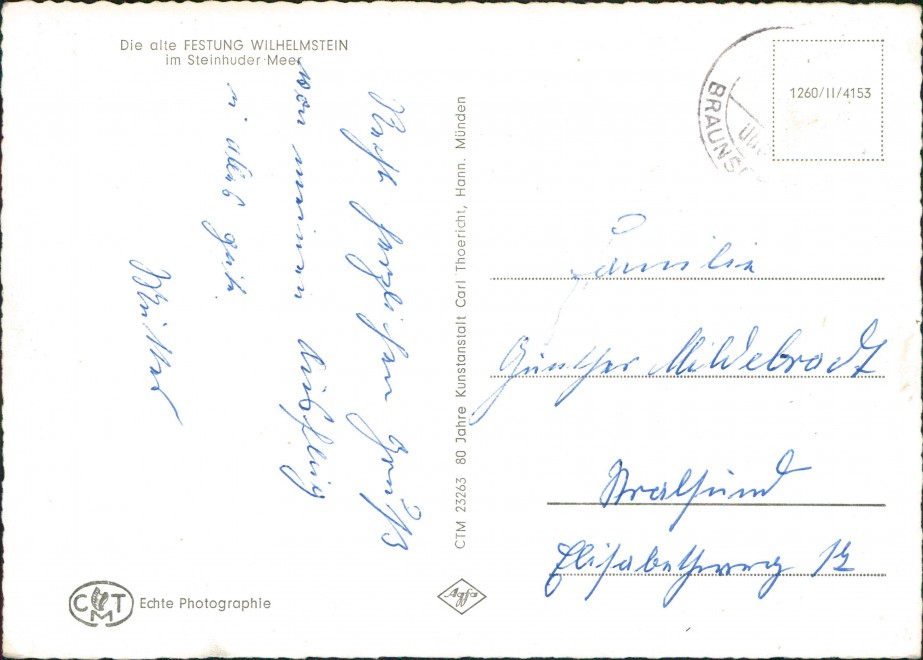 Die alte FESTUNG WILHELMSTEIN
im Steinhuder Meer
Recht herzlichen Gruß
von meinen Ausflug
u alles gute
CTM 23263 80 Jahre Kunstanstalt Carl Thoericht, Hann. Münden
BRAUNSC
üb
1260/II/4153
Familie
Günther Mildebradt
Stralsund
Elisabethweg
CTM
Echte Photographie
Agfa